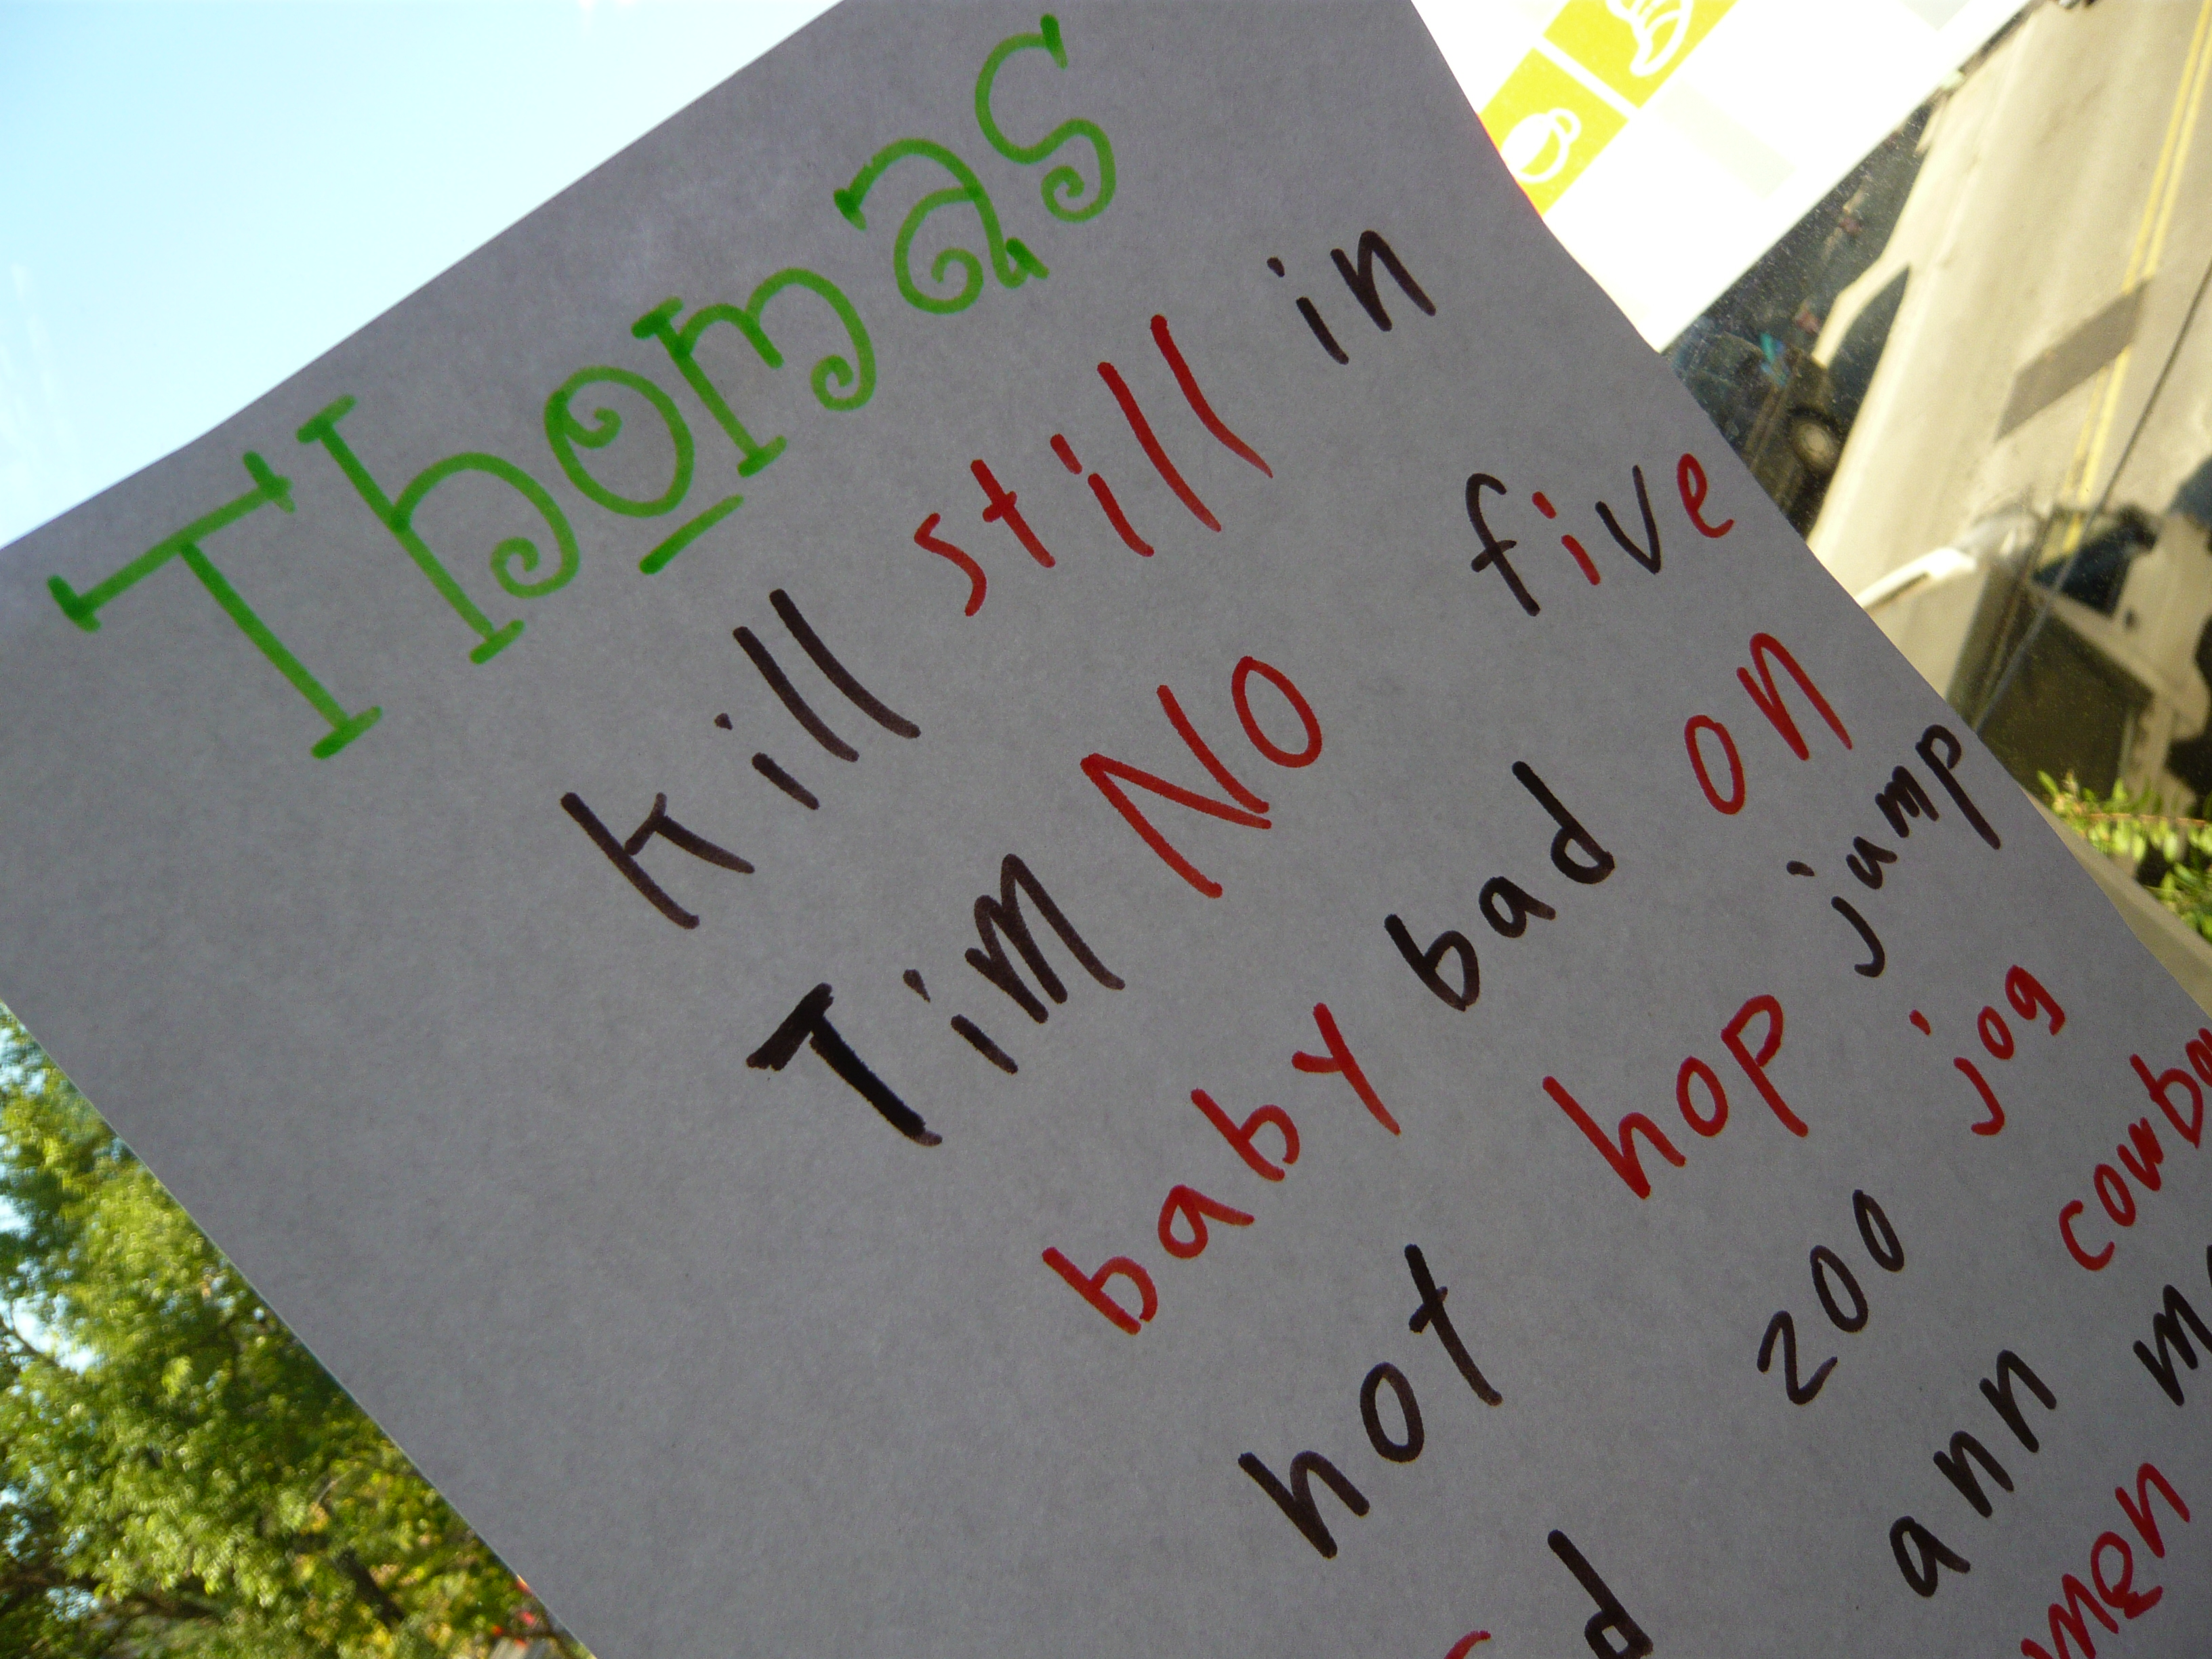 Thomas
kill still in
Tim NO five
baby bad on
hot hop jump
zoo jog
ann
men